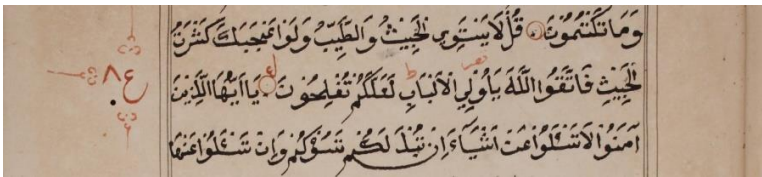 وَمَا تَكْتُمُونَ قُلْ لَا يَسْتَوِي الْخَبِيثُ وَالطَّيِّبُ وَلَوْ أَعْجَبَكَ كَثْرَةُ
الْخَبِيثِ فَاتَّقُوا اللَّهَ يَا أُولِي الْأَلْبَابِ لَعَلَّكُمْ تُفْلِحُونَ يَا أَيُّهَا الَّذِينَ
آمَنُوا لَا تَسْئَلُوا عَنْ أَشْيَاءَ إِنْ تُبْدَ لَكُمْ تَسُؤْكُمْ وَإِنْ تَسْئَلُوا عَنْهَا